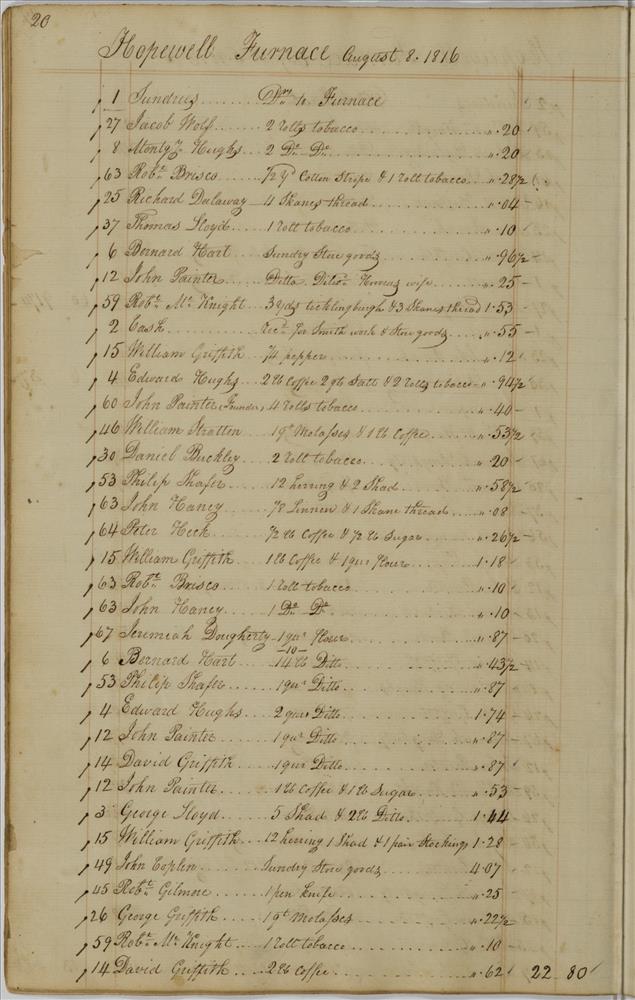 20
Hopewell Furnace August 8. 1816
1 Sundries Drs to Furnace
27 Jacob Wolf 2 rolls tobacco " . 20
8 Montgy Hughs 2 Do Do " . 20
63 Robt Brisco 1/2 yd Cotton Stripe & 1 roll tobacco " . 28 1/2
25 Richard Dalaway 4 Skanes thread " . 04
37 Thomas Lloyd 1 roll tobacco " . 10
6 Bernard Hart Sundry Store goods " . 96 1/2
12 John Painter Ditto wife " . 25
59 Robt Mc Knight 3 yds ticklingburgh & 3 Skanes thread 1 . 53
2 Cash Recd for Smith work & Store goods " . 55
15 William Griffith 1/4 pepper " . 12
4 Edward Hughs 2 lb Coffee 2 qts Salt & 2 rolls tobacco " . 94 1/2
60 John Painter (Founder) 4 rolls tobacco " . 40
46 William Stratten 1 qt Molasses & 1 lb Coffee " . 53 1/2
30 Daniel Buckley 2 roll tobacco " . 20
53 Philip Shafer 12 herring & 2 Shad " . 58 1/2
63 John Haney 7/8 Linnen & 1 Skane thread " . 08
64 Peter Heck 1/2 lb Coffee & 1/2 lb Sugar " . 26 1/2
15 William Griffith 1 lb Coffee & 1 qur flour 1 . 18
63 Robt Brisco 1 roll tobacco " . 10
63 John Haney 1 Do Do " . 10
67 Jeremiah Dougherty 1 qur flour " . 87
6 Bernard Hart 14 lb Ditto " . 43 1/2
10
53 Philip Shafer 1 qur Ditto " . 87
4 Edward Hughs 2 qurs Ditto 1 . 74
12 John Painter 1 qur Ditto " . 87
14 David Griffith 1 qur Ditto " . 87
12 John Painter 1 lb Coffee & 1 lb Sugar " . 53
3 George Lloyd 5 Shad & 2 lb Ditto 1 . 44
15 William Griffith 12 herring 1 Shad & 1 pair Stockings 1 . 28
49 John Coplen Sundry Store goods 4 . 07
45 Robt Gilmore 1 pen knife " . 25
26 George Griffith 1 qt Molasses " . 22 1/2
59 Robt Mc Knight 1 roll tobacco " . 10
14 David Griffith 2 lb Coffee " . 62 22 80